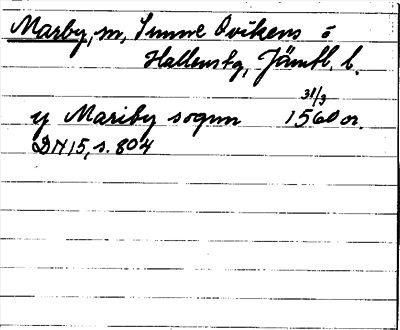 Marby, m, Sunne Ovikens o
Hallenstg, Jämtl. l.
31/3
y Mariby sognn 1560 or.
DN 15, s. 804